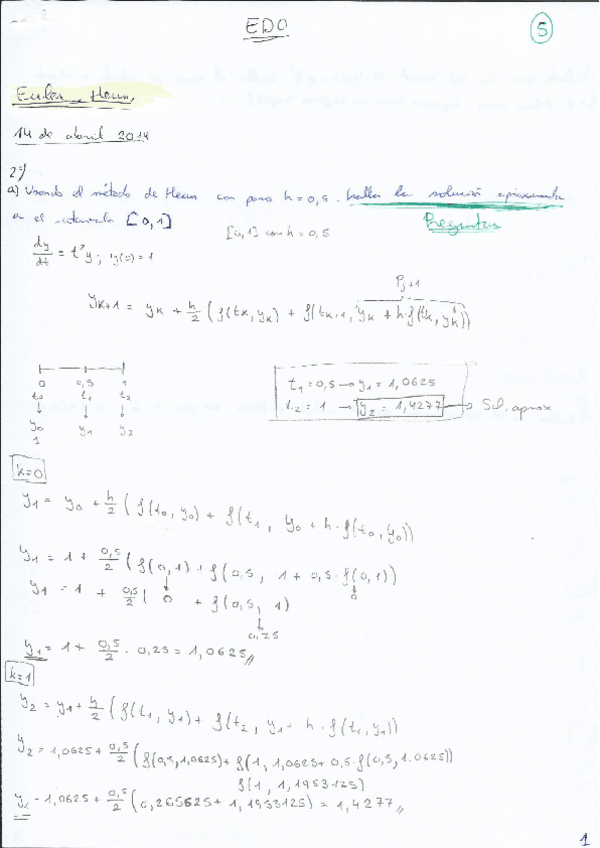 EDO
5
Euler Heun
14 de abril 2014
2º)
a) Usando el método de Heun con paso h=0,5. hallar la solución aproximada
en el intervalo [0,1]
Preguntas
[0,1] con h=0,5
dy/dt = t²y; y(0)=1
Pj+1
yk+1 = yk + h/2 (f(tk, yk) + f(tk+1, yk + h·f(tk, yk))
0 0,5 1
t0 t1 t2
y0 y1 y2
1
t1 = 0,5 → y1 = 1,0625
t2 = 1 → y2 = 1,4277 → Sol. aprox
k=0
y1 = y0 + h/2 (f(t0, y0) + f(t1, y0 + h·f(t0, y0))
y1 = 1 + 0,5/2 (f(0,1) + f(0,5, 1 + 0,5·f(0,1))
0
y1 = 1 + 0,5/2 (0 + f(0,5, 1)
0,25
y1 = 1 + 0,5/2 · 0,25 = 1,0625//
k=1
y2 = y1 + h/2 (f(t1, y1) + f(t2, y1 + h·f(t1, y1))
y2 = 1,0625 + 0,5/2 (f(0,5, 1,0625) + f(1, 1,0625 + 0,5·f(0,5, 1.0625))
f(1, 1,1953125)
y2 = 1,0625 + 0,5/2 (0,265625 + 1,1953125) = 1,4277//
1